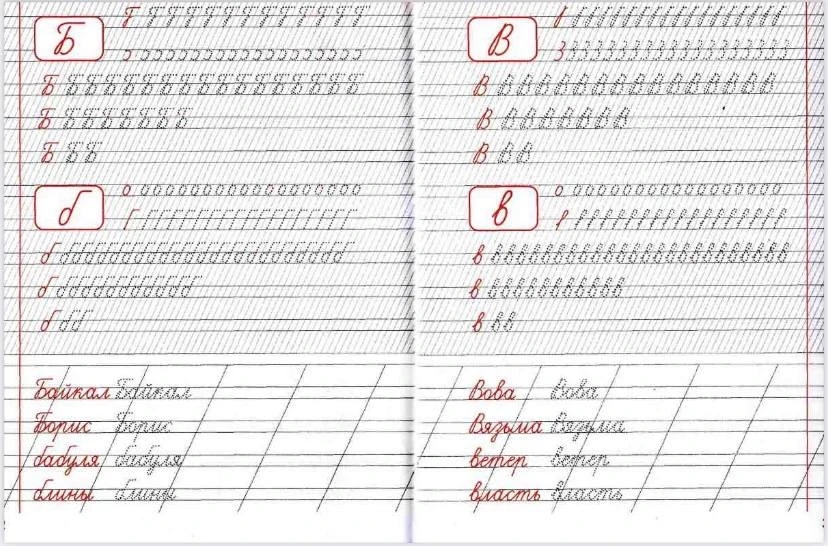 Б
Б ББББББББББББББББ
Б БББББББ
Б ББ
б
б ббббббббббббббббббббббб
б ббббббббббб
б бб
Байкал Байкал
Борис Борис
бабуля бабуля
блины блины
В
В ВВВВВВВВВВВВВВВ
В ВВВВВВВ
В ВВ
в
в вввввввввввввввввввввввв
в ввввввввввв
в вв
Вова Вова
Вязьма Вязьма
ветер ветер
власть власть